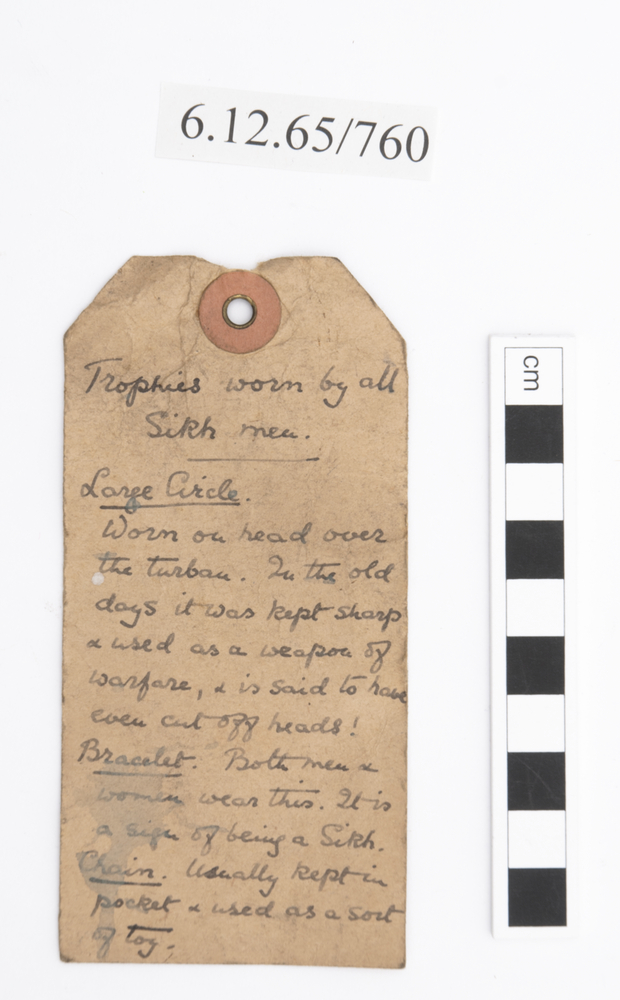 6.12.65/760
Trophies worn by all
Sikh men.
Large Circle.
Worn on head over
the turban. In the old
days it was kept sharp
& used as a weapon of
warfare, & is said to have
even cut off heads!
Bracelet. Both men &
women wear this. It is
a sign of being a Sikh.
Chain. Usually kept in
pocket & used as a sort
of toy.
cm